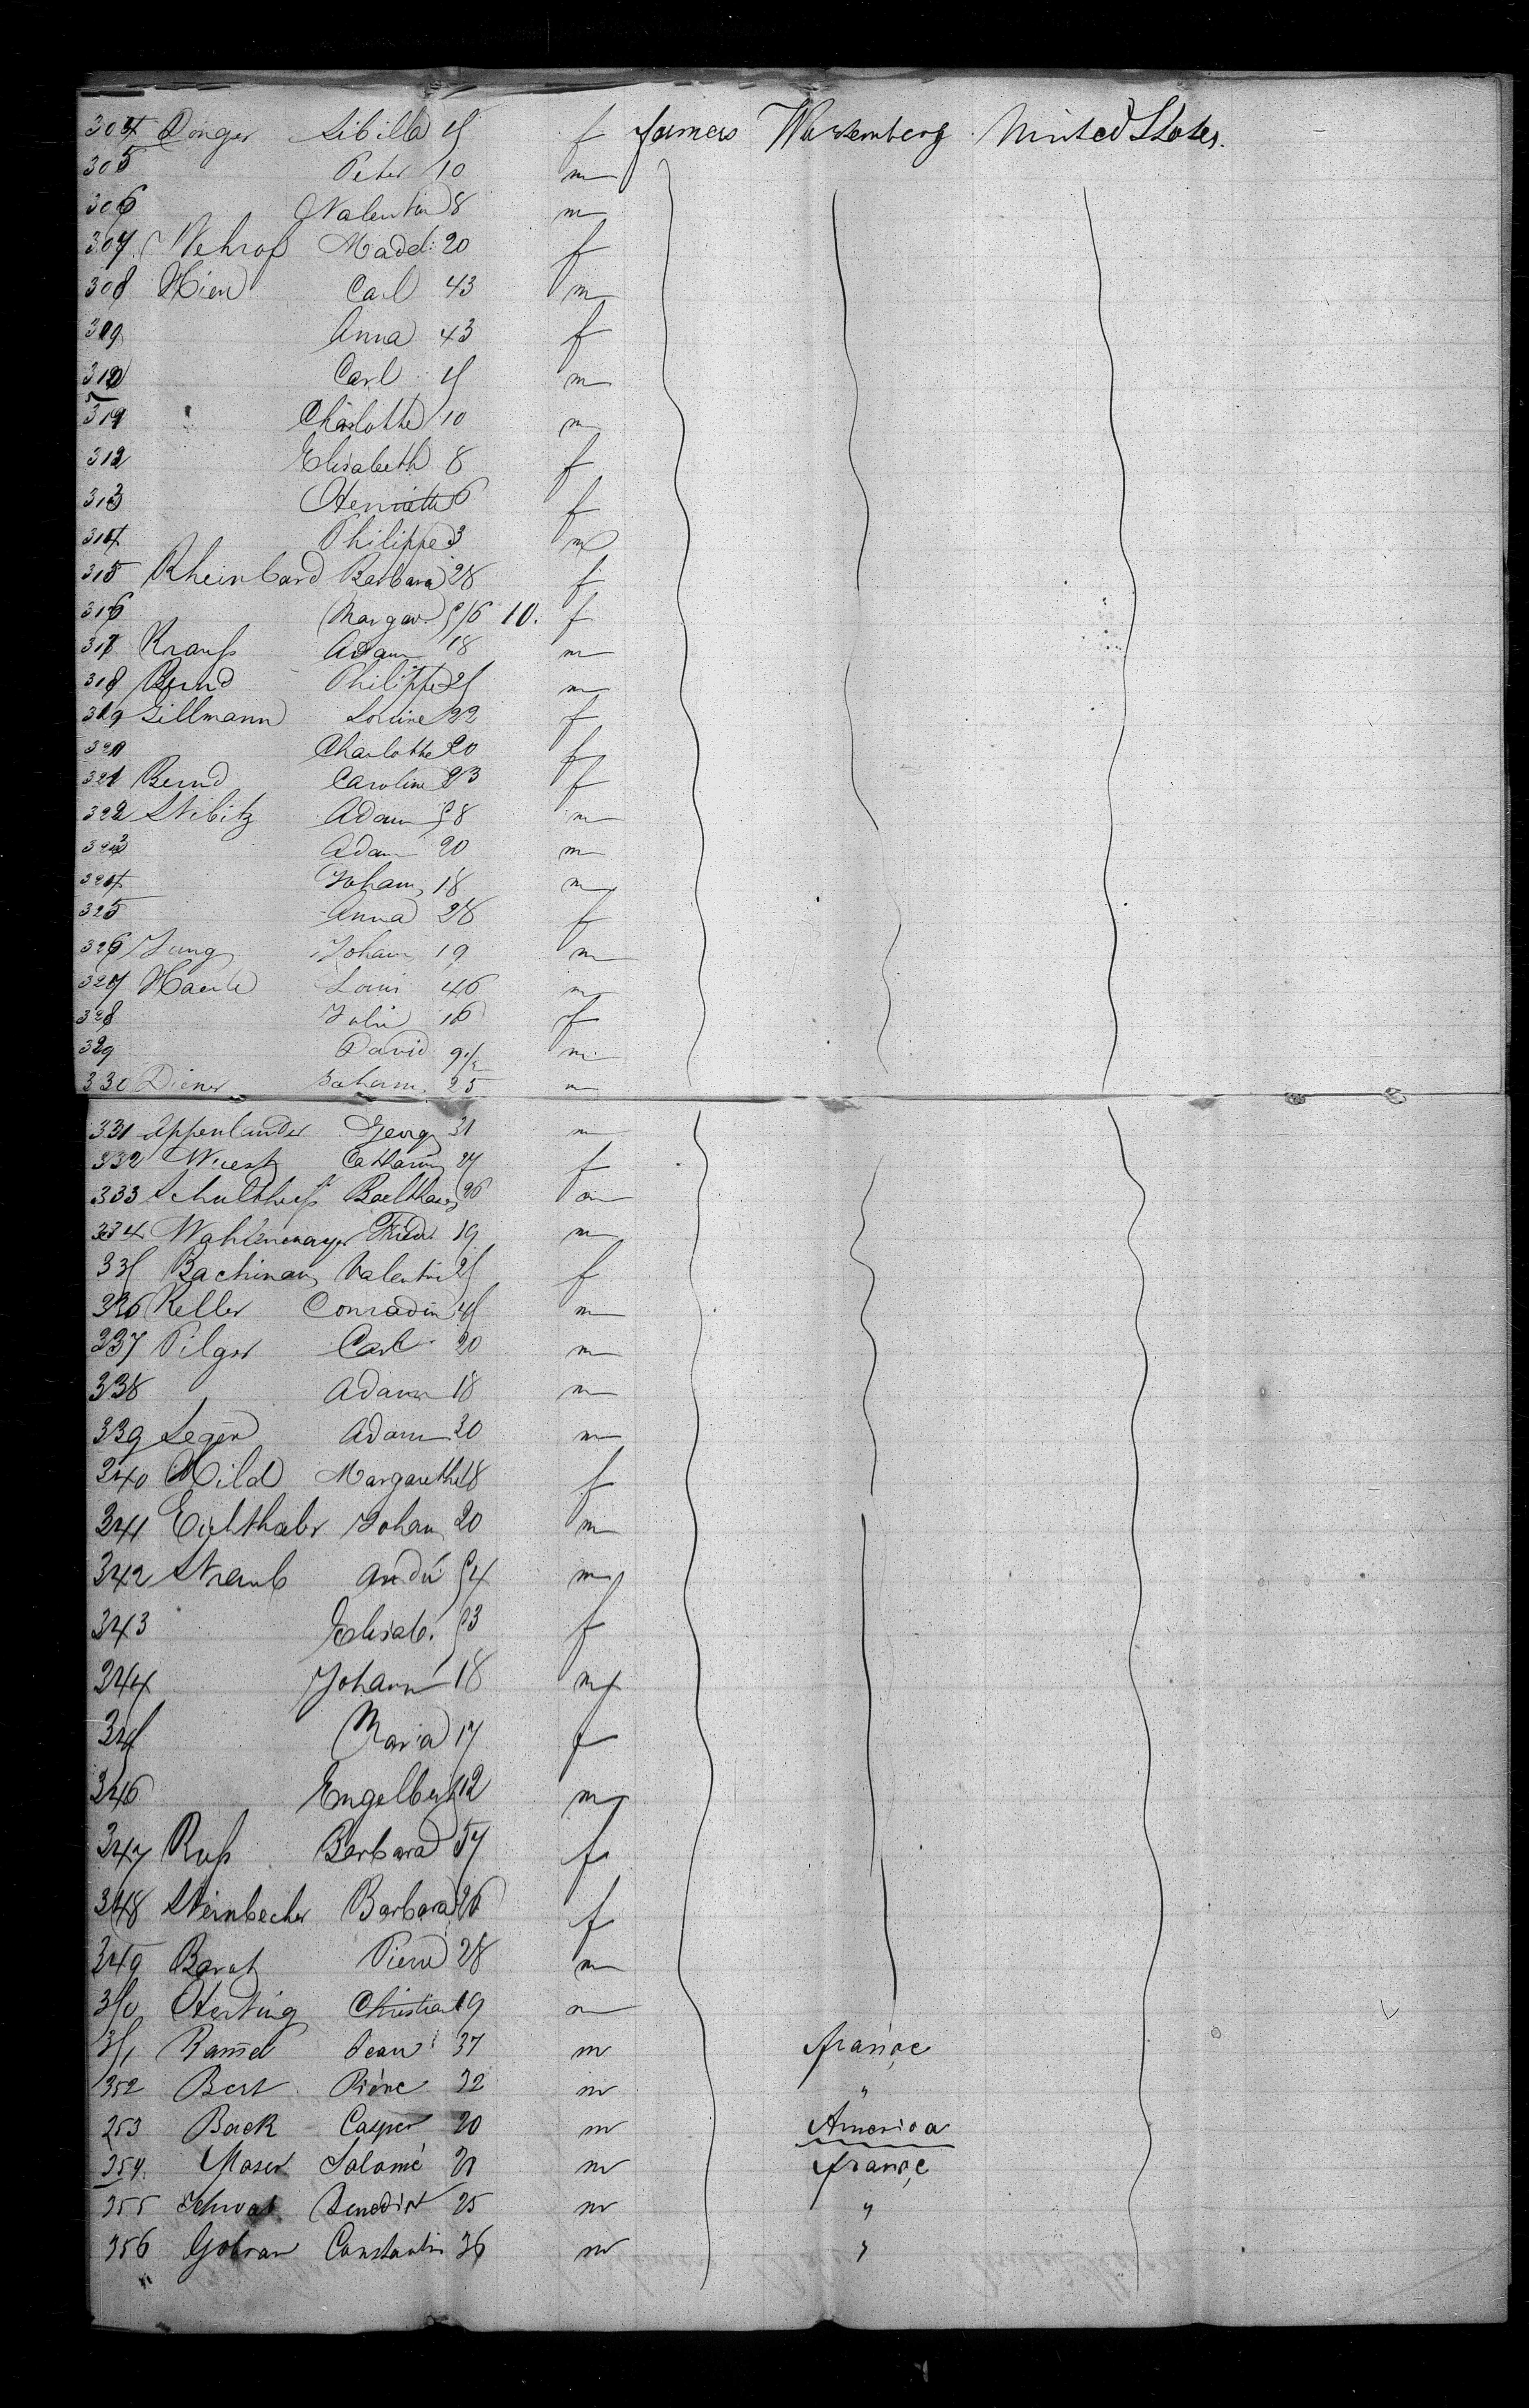 304 Donger Sibilla 15 f farmers Wurtemberg United States.
305 Peter 10 m
306 Valentin 8 m
307 Madel: 20 f
308 Hien Carl 43 m
309 Anna 43 f
310 Carl 15 m
311 Charlotte 10 m
312 Elisabeth 8 f
313 Henriette 6 f
314 Philippe 3 m
315 Rheinhard Barbara 28 f
316 Margar. 5/6 10. f
317 Krauß Adam 18 m
318 Bernd Philippe 25 m
319 Gillmann 22 f
320 Charlotte 20 f
321 Bernd Caroline 23 f
322 Stibitz Adam 58 m
323 Adam 20 m
324 Johann 18 m
325 Anna 28 f
326 Jung Johann 19 m
327 Louis 46 m
328 Julie 16 f
329 David 9 1/2 m
330 Diener Joham. 25 m
331 Appenlander Georg 31 m
332 Wuest Catharin 27 f
333 Schultheiß Balthasar 26 m
334 Wahlenmayer Friedr 19 m
335 Bachman Valentin 25 f
336 Keller Conradin 45 m
337 Pilger Carl 20 m
338 Adam 18 m
339 Leger Adam 30 m
340 Hild Margarethe 18 f
341 Eichthaler Johan 20 m
342 Straub André 54 m
343 Elisab. 53 f
344 Johann 18 m
345 Maria 17 f
346 Engelbert 12 m
347 Ruß Barbara 57 f
348 Steinbecher Barbara 26 f
349 Barat Pierre 28 m
350 Herting Christian 19 m
351 Ram̄el Jean 37 m france
352 Bert Piérre 32 m "
353 Back Casper 20 m America
354. Moser Salomé 21 m france
355 Benedict 25 m "
356 Gobran Constantin 36 m "
"